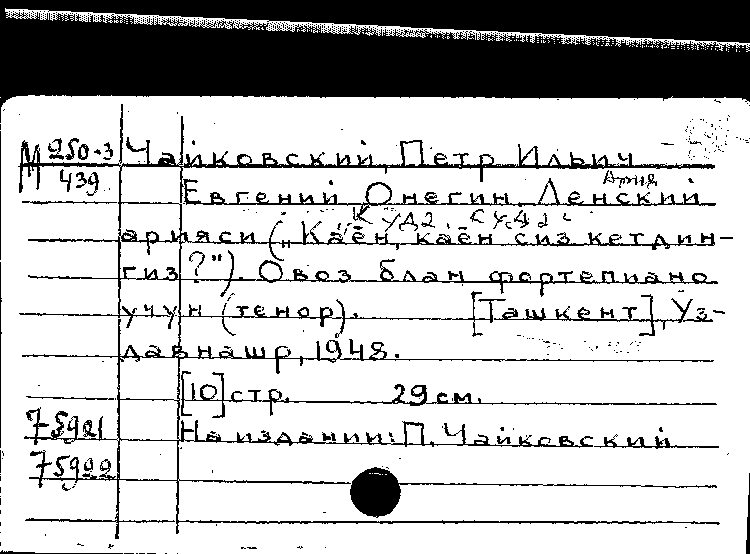 М 950-3 Чайковский, Петр Ильич
439 Ария
Евгений Онегин. Ленский
Куда, куда
арияси („Каён, каён сиз кетдин-
гиз?"). Овоз блан фортепиано
учун (тенор). [Ташкент], Уз-
давнашр, 1948.
[10] стр. 29 см.
75921 На издании: П. Чайковский
75922